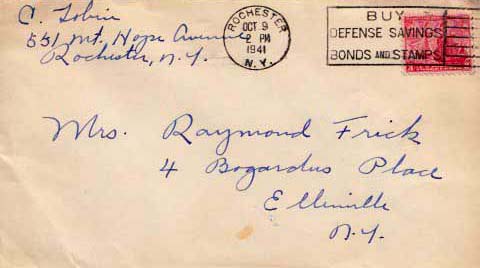 C. Tobin
551 Mt. Hope Avenue
Rochester, N.Y.
ROCHESTER
OCT 9
PM
1941
N.Y.
BUY
DEFENSE SAVINGS
BONDS AND STAMPS
Mrs. Raymond Frick
4 Bogardus Place
Ellenville
N.Y.